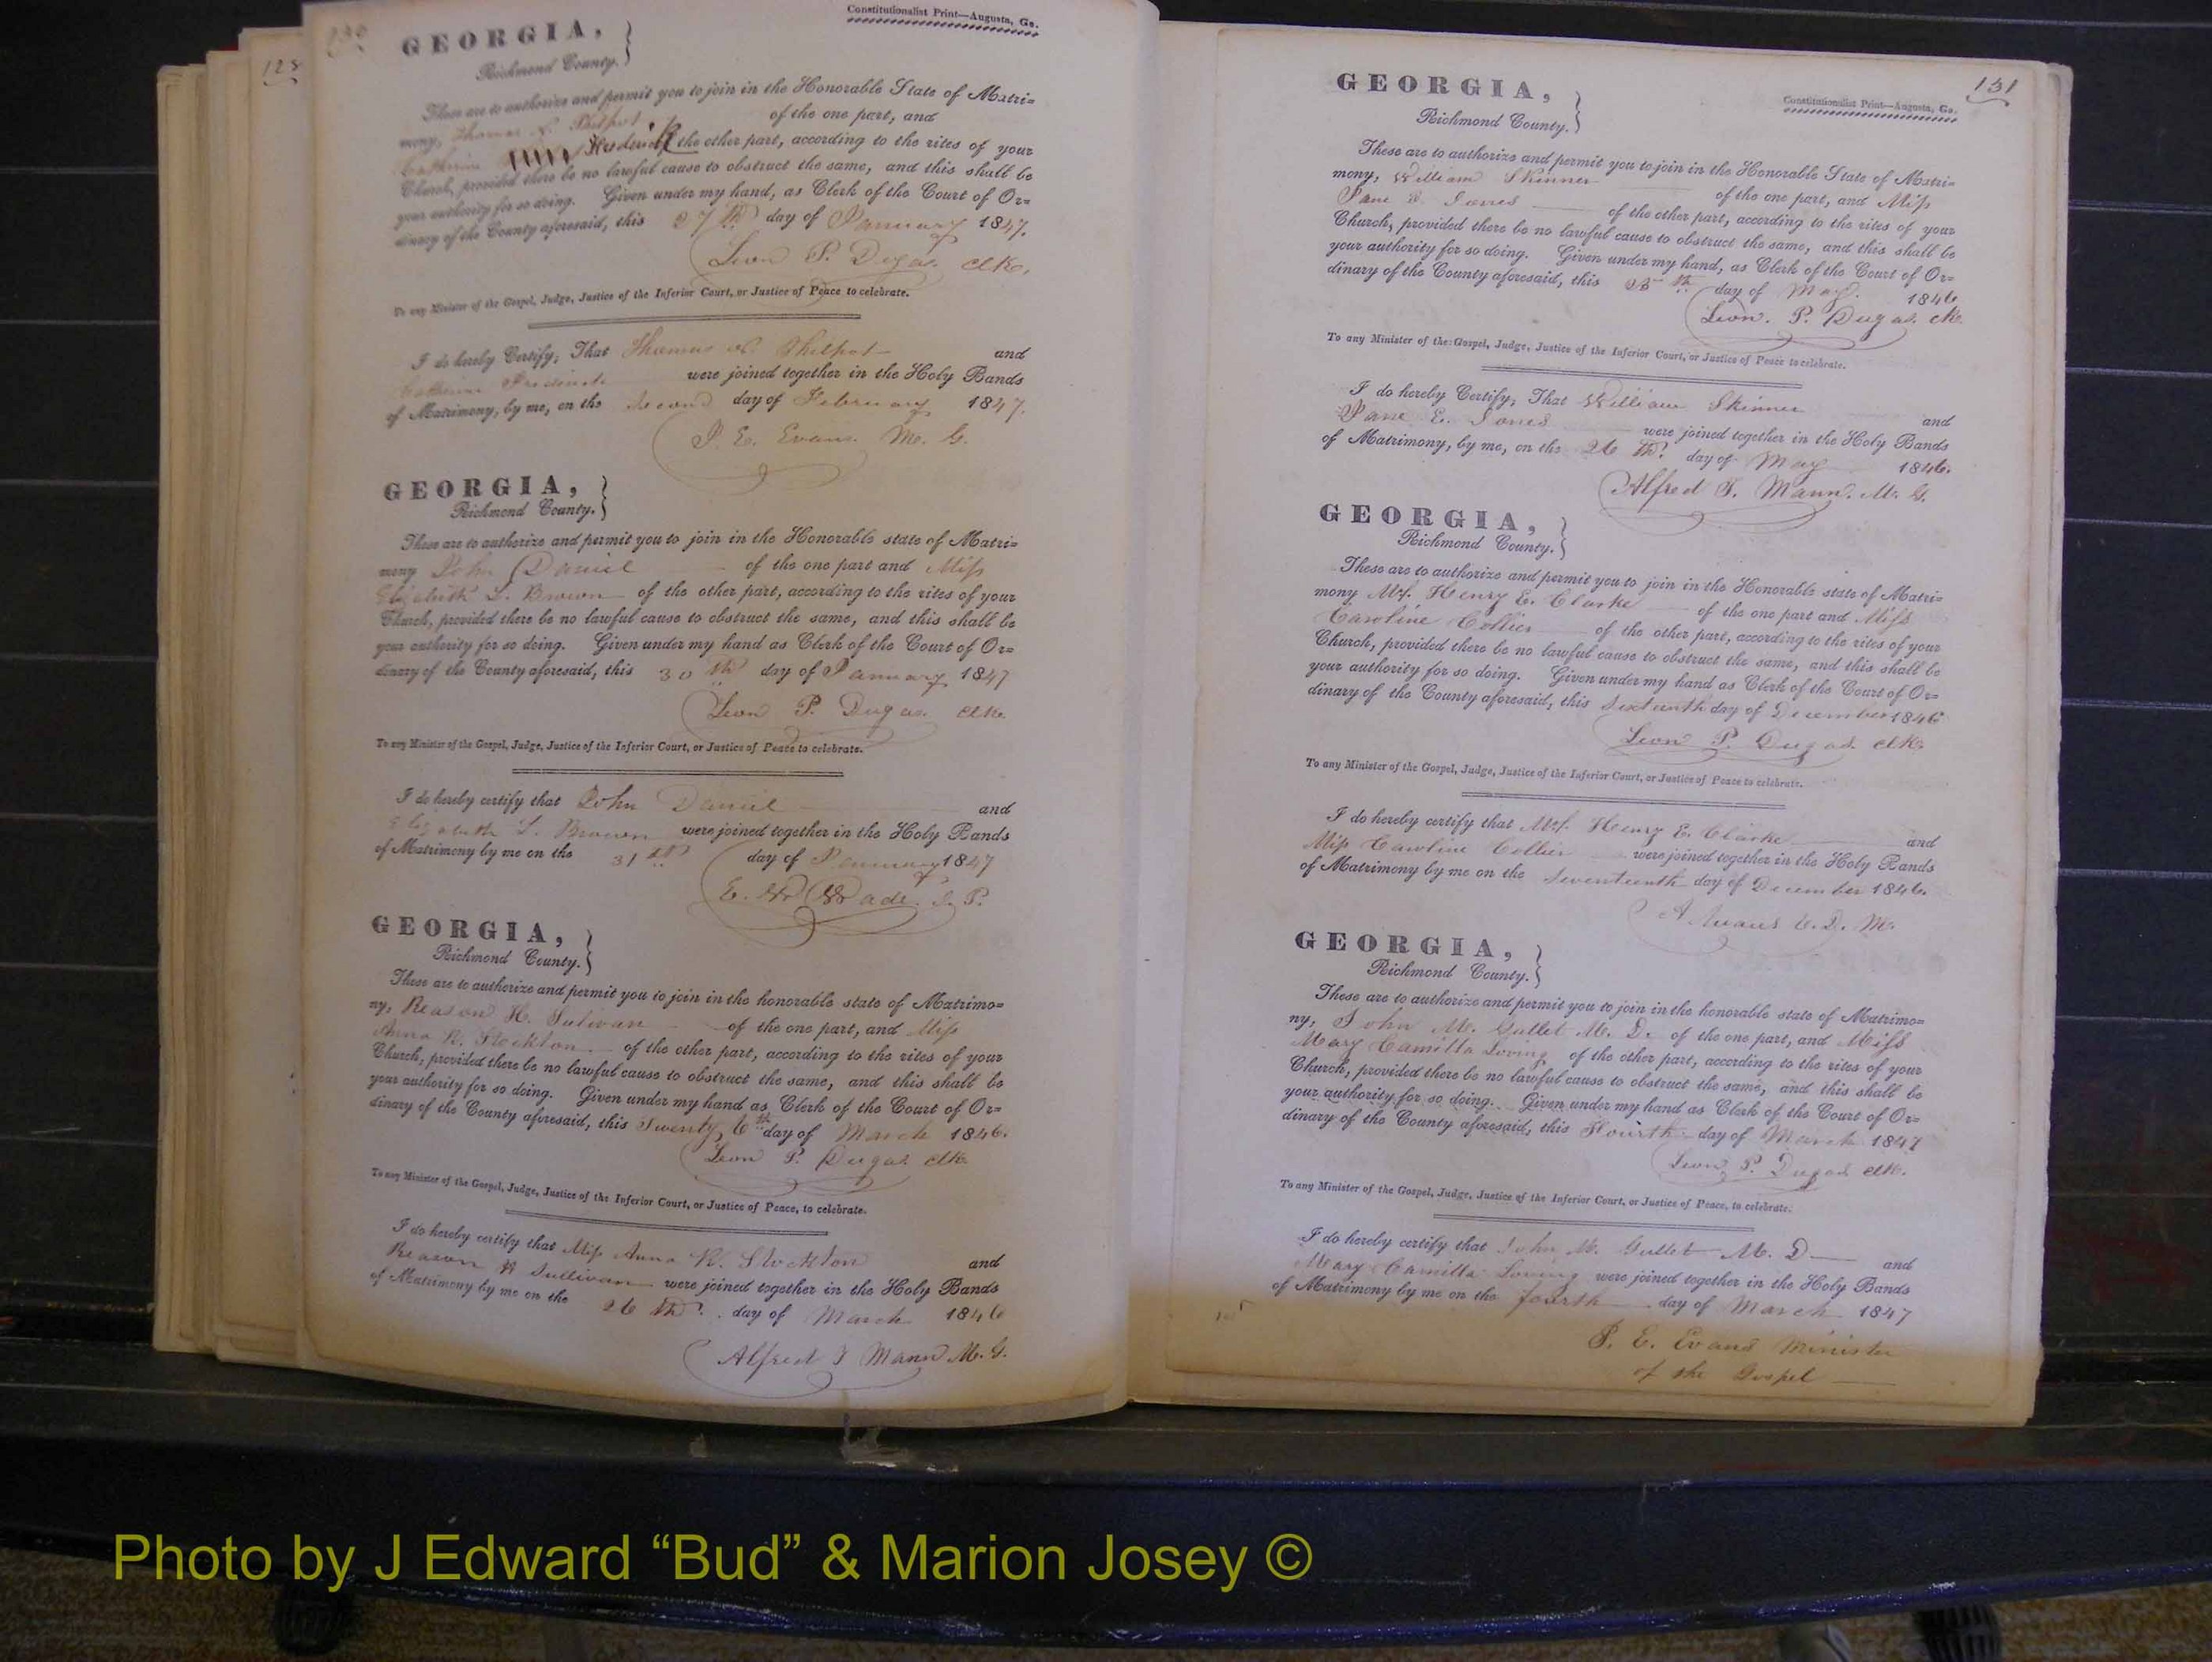 Constitutionalist Print—Augusta, Ga.
GEORGIA,
Richmond County.
These are to authorize and permit you to join in the Honorable State of Matri=
mony, Thomas Philpot of the one part, and
Catherine the other part, according to the rites of your
Church, provided there be no lawful cause to obstruct the same, and this shall be
your authority for so doing. Given under my hand, as Clerk of the Court of Or=
dinary of the County aforesaid, this 27th day of January 1847.
Leon P. Dugas. Clk.
To any Minister of the Gospel, Judge, Justice of the Inferior Court, or Justice of Peace to celebrate.
I do hereby Certify, That Thomas Philpot and
Catherine were joined together in the Holy Bands
of Matrimony, by me, on the Second day of February 1847.
J. E. Evans. M. G.
GEORGIA,
Richmond County.
These are to authorize and permit you to join in the Honorable state of Matri=
mony John Daniel of the one part and Miss
Elizabeth L. Brown of the other part, according to the rites of your
Church, provided there be no lawful cause to obstruct the same, and this shall be
your authority for so doing. Given under my hand as Clerk of the Court of Or=
dinary of the County aforesaid, this 30th day of January 1847
Leon P. Dugas. Clk.
To any Minister of the Gospel, Judge, Justice of the Inferior Court, or Justice of Peace to celebrate.
I do hereby certify that John Daniel and
Elizabeth L. Brown were joined together in the Holy Bands
of Matrimony by me on the 31st day of January 1847
E. W. Wade. J. P.
GEORGIA,
Richmond County.
These are to authorize and permit you to join in the honorable state of Matrimo=
ny, Reason H. Sulivan of the one part, and Miss
Anna R. Stockton of the other part, according to the rites of your
Church, provided there be no lawful cause to obstruct the same, and this shall be
your authority for so doing. Given under my hand as Clerk of the Court of Or=
dinary of the County aforesaid, this Twenty 6th day of March 1846.
Leon P. Dugas. Clk
To any Minister of the Gospel, Judge, Justice of the Inferior Court, or Justice of Peace, to celebrate.
I do hereby certify that Miss Anna R. Stockton and
Reason H Sullivan were joined together in the Holy Bands
of Matrimony by me on the 26th. day of March 1846
Alfred T Mann M. G.
131
Constitutionalist Print—Augusta, Ga.
GEORGIA,
Richmond County.
These are to authorize and permit you to join in the Honorable State of Matri=
mony, William Skinner of the one part, and Miss
Jane E. Jones of the other part, according to the rites of your
Church, provided there be no lawful cause to obstruct the same, and this shall be
your authority for so doing. Given under my hand, as Clerk of the Court of Or=
dinary of the County aforesaid, this 25th day of May. 1846
Leon. P. Dugas. Clk.
To any Minister of the Gospel, Judge, Justice of the Inferior Court, or Justice of Peace to celebrate.
I do hereby Certify, That William Skinner and
Jane E. Jones were joined together in the Holy Bands
of Matrimony, by me, on the 26th. day of May 1846.
Alfred T. Mann. M. G.
GEORGIA,
Richmond County.
These are to authorize and permit you to join in the Honorable state of Matri=
mony Mr. Henry E. Clarke of the one part and Miss
Caroline Collier of the other part, according to the rites of your
Church, provided there be no lawful cause to obstruct the same, and this shall be
your authority for so doing. Given under my hand as Clerk of the Court of Or=
dinary of the County aforesaid, this Sixteenth day of December 1846
Leon P. Dugas. Clk.
To any Minister of the Gospel, Judge, Justice of the Inferior Court, or Justice of Peace to celebrate.
I do hereby certify that Mr. Henry E. Clarke and
Miss Caroline Collier were joined together in the Holy Bands
of Matrimony by me on the Seventeenth day of December 1846.
GEORGIA,
Richmond County.
These are to authorize and permit you to join in the honorable state of Matrimo=
ny, John M. Gullet M. D. of the one part, and Miss
Mary Camilla Loving of the other part, according to the rites of your
Church, provided there be no lawful cause to obstruct the same, and this shall be
your authority for so doing. Given under my hand as Clerk of the Court of Or=
dinary of the County aforesaid, this Fourth day of March 1847
Leon P. Dugas Clk.
To any Minister of the Gospel, Judge, Justice of the Inferior Court, or Justice of Peace, to celebrate.
I do hereby certify that John M. Gullet M. D and
Mary Camilla Loving were joined together in the Holy Bands
of Matrimony by me on the fourth day of March 1847
J. E. Evans Minister
of the Gospel
Photo by J Edward “Bud” & Marion Josey ©